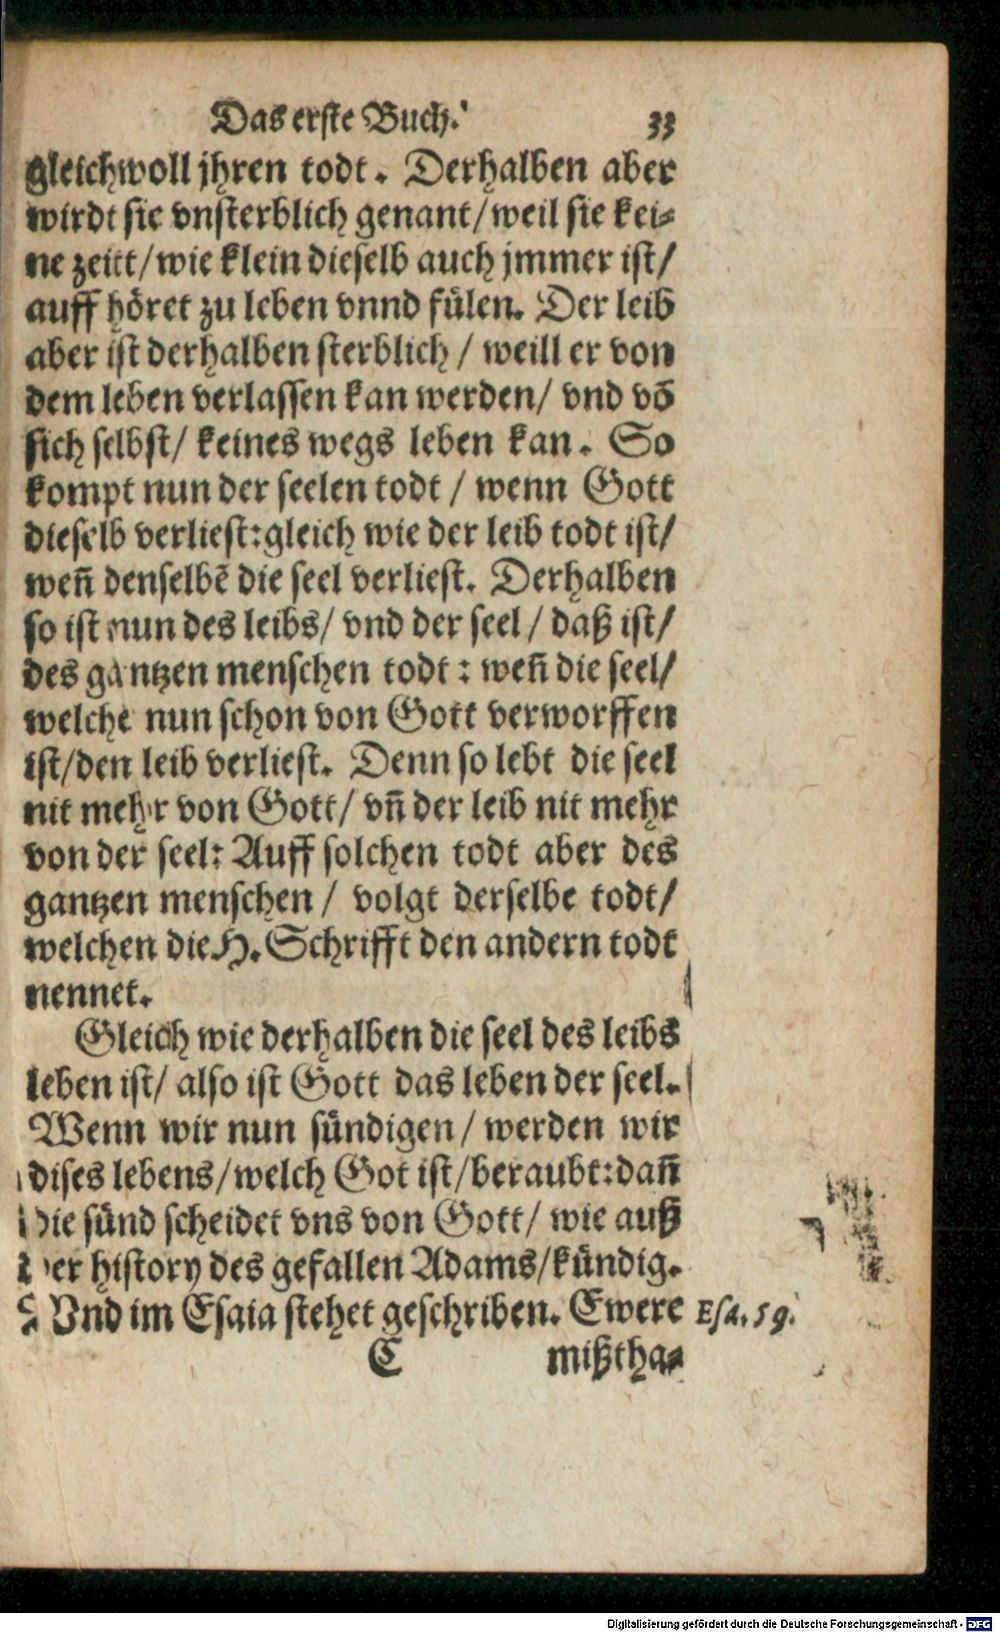 Das erste Buch. 33
gleichwoll jhren todt. Derhalben aber
wirdt sie vnsterblich genant/weil sie kei⸗
ne zeitt/wie klein dieselb auch jmmer ist/
auff höret zu leben vnnd fülen. Der leib
aber ist derhalben sterblich / weill er von
dem leben verlassen kan werden/ vnd võ
sich selbst/ keines wegs leben kan. So
kompt nun der seelen todt / wenn Gott
dieselb verliest:gleich wie der leib todt ist/
weñ denselbẽ die seel verliest. Derhalben
so ist nun des leibs/ vnd der seel / daß ist/
des gantzen menschen todt : weñ die seel/
welche nun schon von Gott verworffen
ist/den leib verliest. Denn so lebt die seel
nit mehr von Gott/ vñ der leib nit mehr
von der seel: Auff solchen todt aber des
gantzen menschen / volgt derselbe todt/
welchen die H. Schrifft den andern todt
nennet.
Gleich wie derhalben die seel des leibs
leben ist/ also ist Gott das leben der seel.
Wenn wir nun sündigen / werden wir
dises lebens/welch Got ist/beraubt:dañ
die sünd scheidet vns von Gott/ wie auß
der history des gefallen Adams/kündig.
Vnd im Esaia stehet geschriben. Ewere Esa. 59.
C mißtha⸗
Digitalisierung gefördert durch die Deutsche Forschungsgemeinschaft - DFG